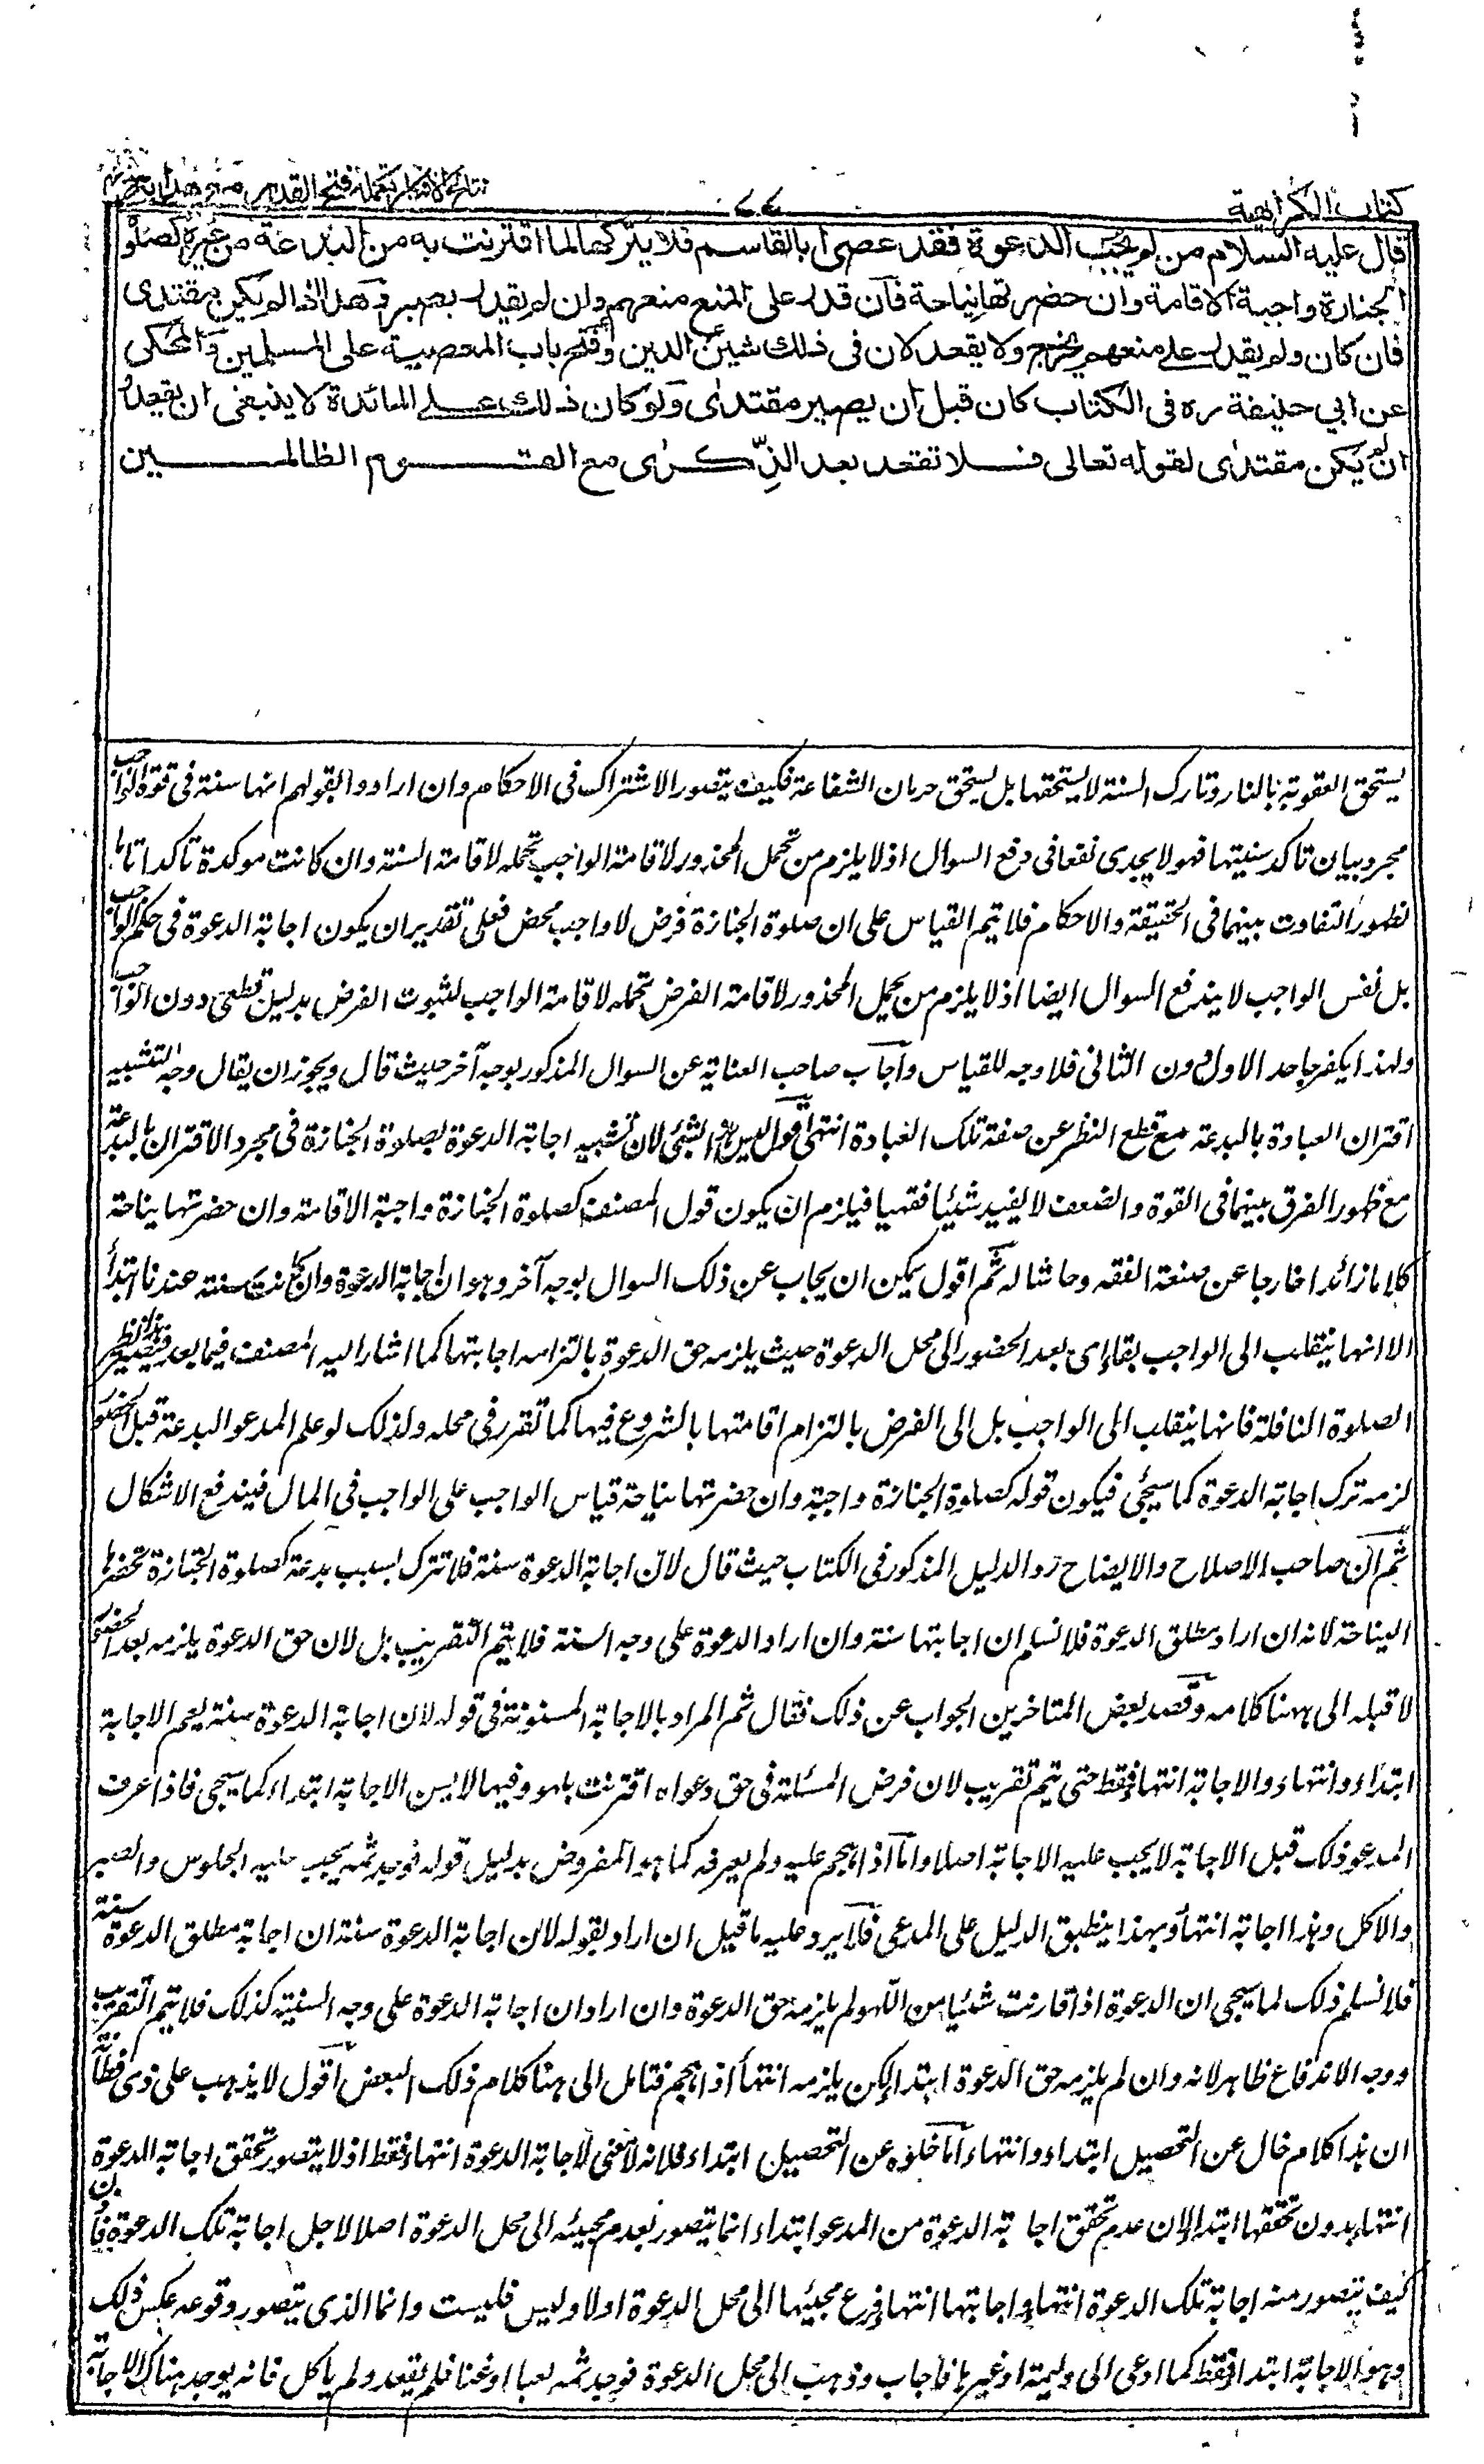 كتاب الكراهية
٧٧
نتائج الافكار تكملة فتح القدير مع هداية
قال عليه السلام من لم يجب الدعوة فقد عصى ابا القاسم فلا يتركها لما اقترنت به من البدعة من غيره كصلوة
الجنازة واجبة الاقامة وان حضرتها نياحة فان قدر على المنع منعهم وان لم يقدر يصبر وهذا اذا لم يكن مقتدى
فان كان ولم يقدر على منعهم يخرج ولا يقعد لان فى ذلك شين الدين وفتح باب المعصية على المسلمين والمحكى
عن ابي حنيفة ره فى الكتاب كان قبل ان يصير مقتدى ولو كان ذلك على المائدة لا ينبغى ان يقعد و
ان لم يكن مقتدى لقوله تعالى فلا تقعد بعد الذكرى مع القوم الظالمين
يستحق العقوبة بالنار وتارك السنة لا يستحقها بل يستحق حرمان الشفاعة فكيف يتصور الاشتراك فى الاحكام وان ارادوا بقولهم انها سنة فى قوة الواجب
مجرد بيان تاكد سنيتها فهو لا يجدى نفعا فى دفع السوال اذ لا يلزم من تحمل المحذور لاقامة الواجب تحمله لاقامة السنة وان كانت موكدة تاكدا تاما
لظهور التفاوت بينهما فى الحقيقة والاحكام فلا يتم القياس على ان صلوة الجنازة فرض لا واجب محض فعلى تقدير ان يكون اجابة الدعوة فى حكم الواجب
بل نفس الواجب لا يندفع السوال ايضا اذ لا يلزم من تحمل المحذور لاقامة الفرض تحمله لاقامة الواجب لثبوت الفرض بدليل قطعى دون الواجب
ولهذا يكفر جاحد الاول دون الثانى فلا وجه للقياس واجاب صاحب العناية عن السوال المذكور بوجه آخر حيث قال ويجوز ان يقال وجه التشبيه
اقتران العبادة بالبدعة مع قطع النظر عن صفة تلك العبادة انتهى اقول ليس هذا بشئ لان تشبيه اجابة الدعوة بصلوة الجنازة فى مجرد الاقتران بالبدعة
مع ظهور الفرق بينهما فى القوة والضعف لا يفيد شئيا فقهيا فيلزم ان يكون قول المصنف كصلوة الجنازة واجبة الاقامة وان حضرتها نياحة
كلاما زائدا خارجا عن صنعة الفقه وحاشا له ثم اقول يمكن ان يجاب عن ذلك السوال بوجه آخر وهو ان اجابة الدعوة وان كانت سنة عندنا ابتدأ
الا انها ينقلب الى الواجب بقاء اى بعد الحضور الى محل الدعوة حيث يلزمه حق الدعوة بالتزامه اجابتها كما اشار اليه المصنف فيما بعد فيصير هذا نظير
الصلوة النافلة فانها ينقلب الى الواجب بل الى الفرض بالتزام اقامتها بالشروع فيها كما تقرر فى محله ولذلك لو علم المدعو البدعة قبل الحضور
لزمه ترك اجابة الدعوة كما سيجئ فيكون قوله كصلوة الجنازة واجبة وان حضرتها نياحة قياس الواجب على الواجب فى المال فيندفع الاشكال
ثم ان صاحب الاصلاح والايضاح رد الدليل المذكور فى الكتاب حيث قال لان اجابة الدعوة سنة فلا تترك بسبب بدعة كصلوة الجنازة تحضرها
النياحة لانه ان اراد مطلق الدعوة فلا نسلم ان اجابتها سنة وان اراد الدعوة على وجه السنة فلا يتم التقريب بل لان حق الدعوة يلزمه بعد الحضور
لا قبله الى ههنا كلامه وقصد بعض المتاخرين الجواب عن ذلك فقال ثم المراد بالاجابة المسنونة فى قوله لان اجابة الدعوة سنة يعم الاجابة
ابتداء وانتهاء والاجابة انتهاء فقط حتى يتم تقريب لان فرض المسئلة فى حق دعواه اقترنت بلهو وفيها لا يسن الاجابة ابتداء كما سيجى فاذا عرف
المدعو ذلك قبل الاجابة لا يجب عليه الاجابة اصلا واما اذا هجم عليه ولم يعرفه كما هو المفروض بدليل قوله فوجد ثمه يجب عليه الجلوس والصبر
والاكل وهذا اجابة انتهاء وبهذا ينطبق الدليل على المدعى فلا يرد عليه ما قيل ان اراد بقوله لان اجابة الدعوة سنة ان اجابة مطلق الدعوة سنة
فلا نسلم ذلك لما سيجى ان الدعوة اذا قارنت شئيا من اللهو لم يلزمه حق الدعوة وان اراد ان اجابة الدعوة على وجه السنية كذلك فلا يتم التقريب
ووجه الاندفاع ظاهر لانه وان لم يلزمه حق الدعوة ابتداء لكن يلزمه انتهاء اذا هجم فتامل الى هنا كلام ذلك البعض اقول لا يذهب على ذى فطانة
ان هذا كلام خال عن التحصيل ابتداء وانتهاء اما خلوه عن التحصيل ابتداء فلانه لا معنى لاجابة الدعوة انتهاء فقط اذ لا يتصور تحقق اجابة الدعوة
انتهاء بدون تحققها ابتداء لان عدم تحقق اجابة الدعوة من المدعو ابتداء انما يتصور بعدم مجيئه الى محل الدعوة اصلا لاجل اجابة تلك الدعوة فاذن
كيف يتصور منه اجابة تلك الدعوة انتهاء واجابتها انتهاء فرع مجيئها الى محل الدعوة اولا وليس فليست وانما الذى يتصور وقوعه عكس ذلك
وهو الاجابة ابتداء فقط كما ادعى الى وليمة او غيرها فاجاب وذهب الى محل الدعوة فوجد ثمه لعبا او غنا فلم يقعد ولم ياكل فانه يوجد هناك الاجابة